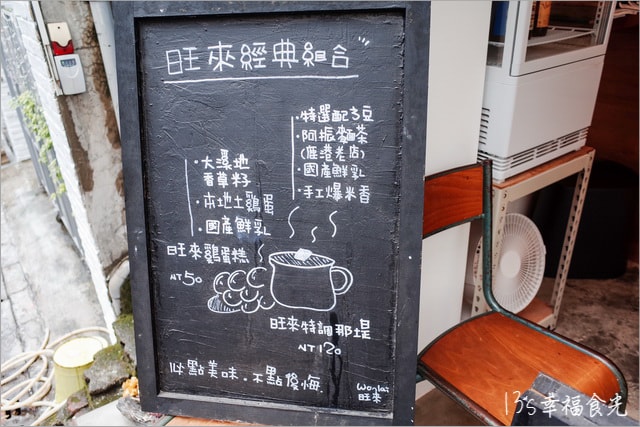 旺來經典組合
・特選配方豆
・阿振麵茶
(鹿港老店)
・國產鮮乳
・手工爆米香
・大溪地
香草籽
・本地土雞蛋
・國產鮮乳
旺來雞蛋糕
NT50
旺來特調那堤
NT120
1點美味．不點後悔
Wonglai
旺來
13's幸福食光